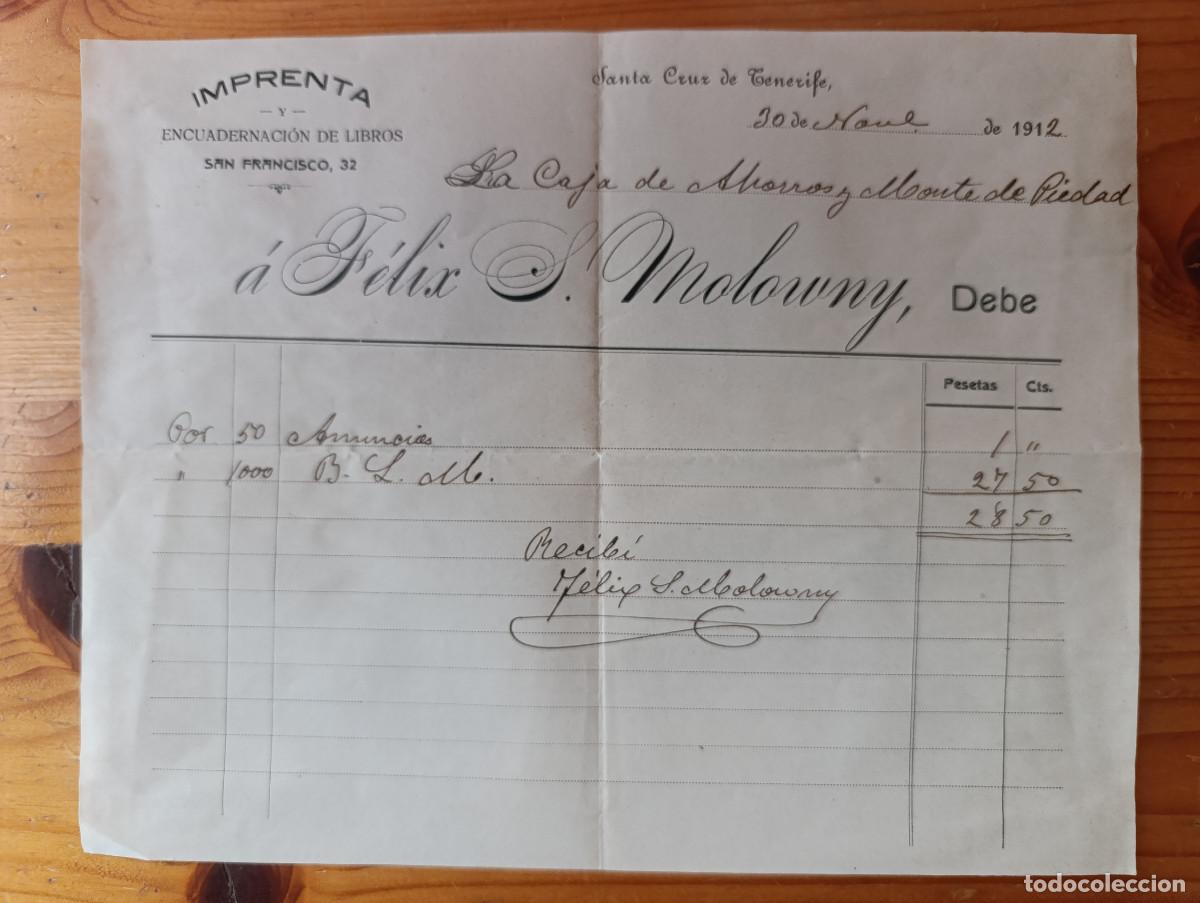 IMPRENTA
— Y —
ENCUADERNACIÓN DE LIBROS
SAN FRANCISCO, 32
Santa Cruz de Tenerife,
30 de Novbe de 1912
La Caja de Ahorros y Monte de Piedad
á Félix S. Molowny, Debe
Pesetas Cts.
Por 50 Anuncios 1 "
" 1000 B. L. M. 27 50
28 50
Recibí
Félix S. Molowny
todocoleccion